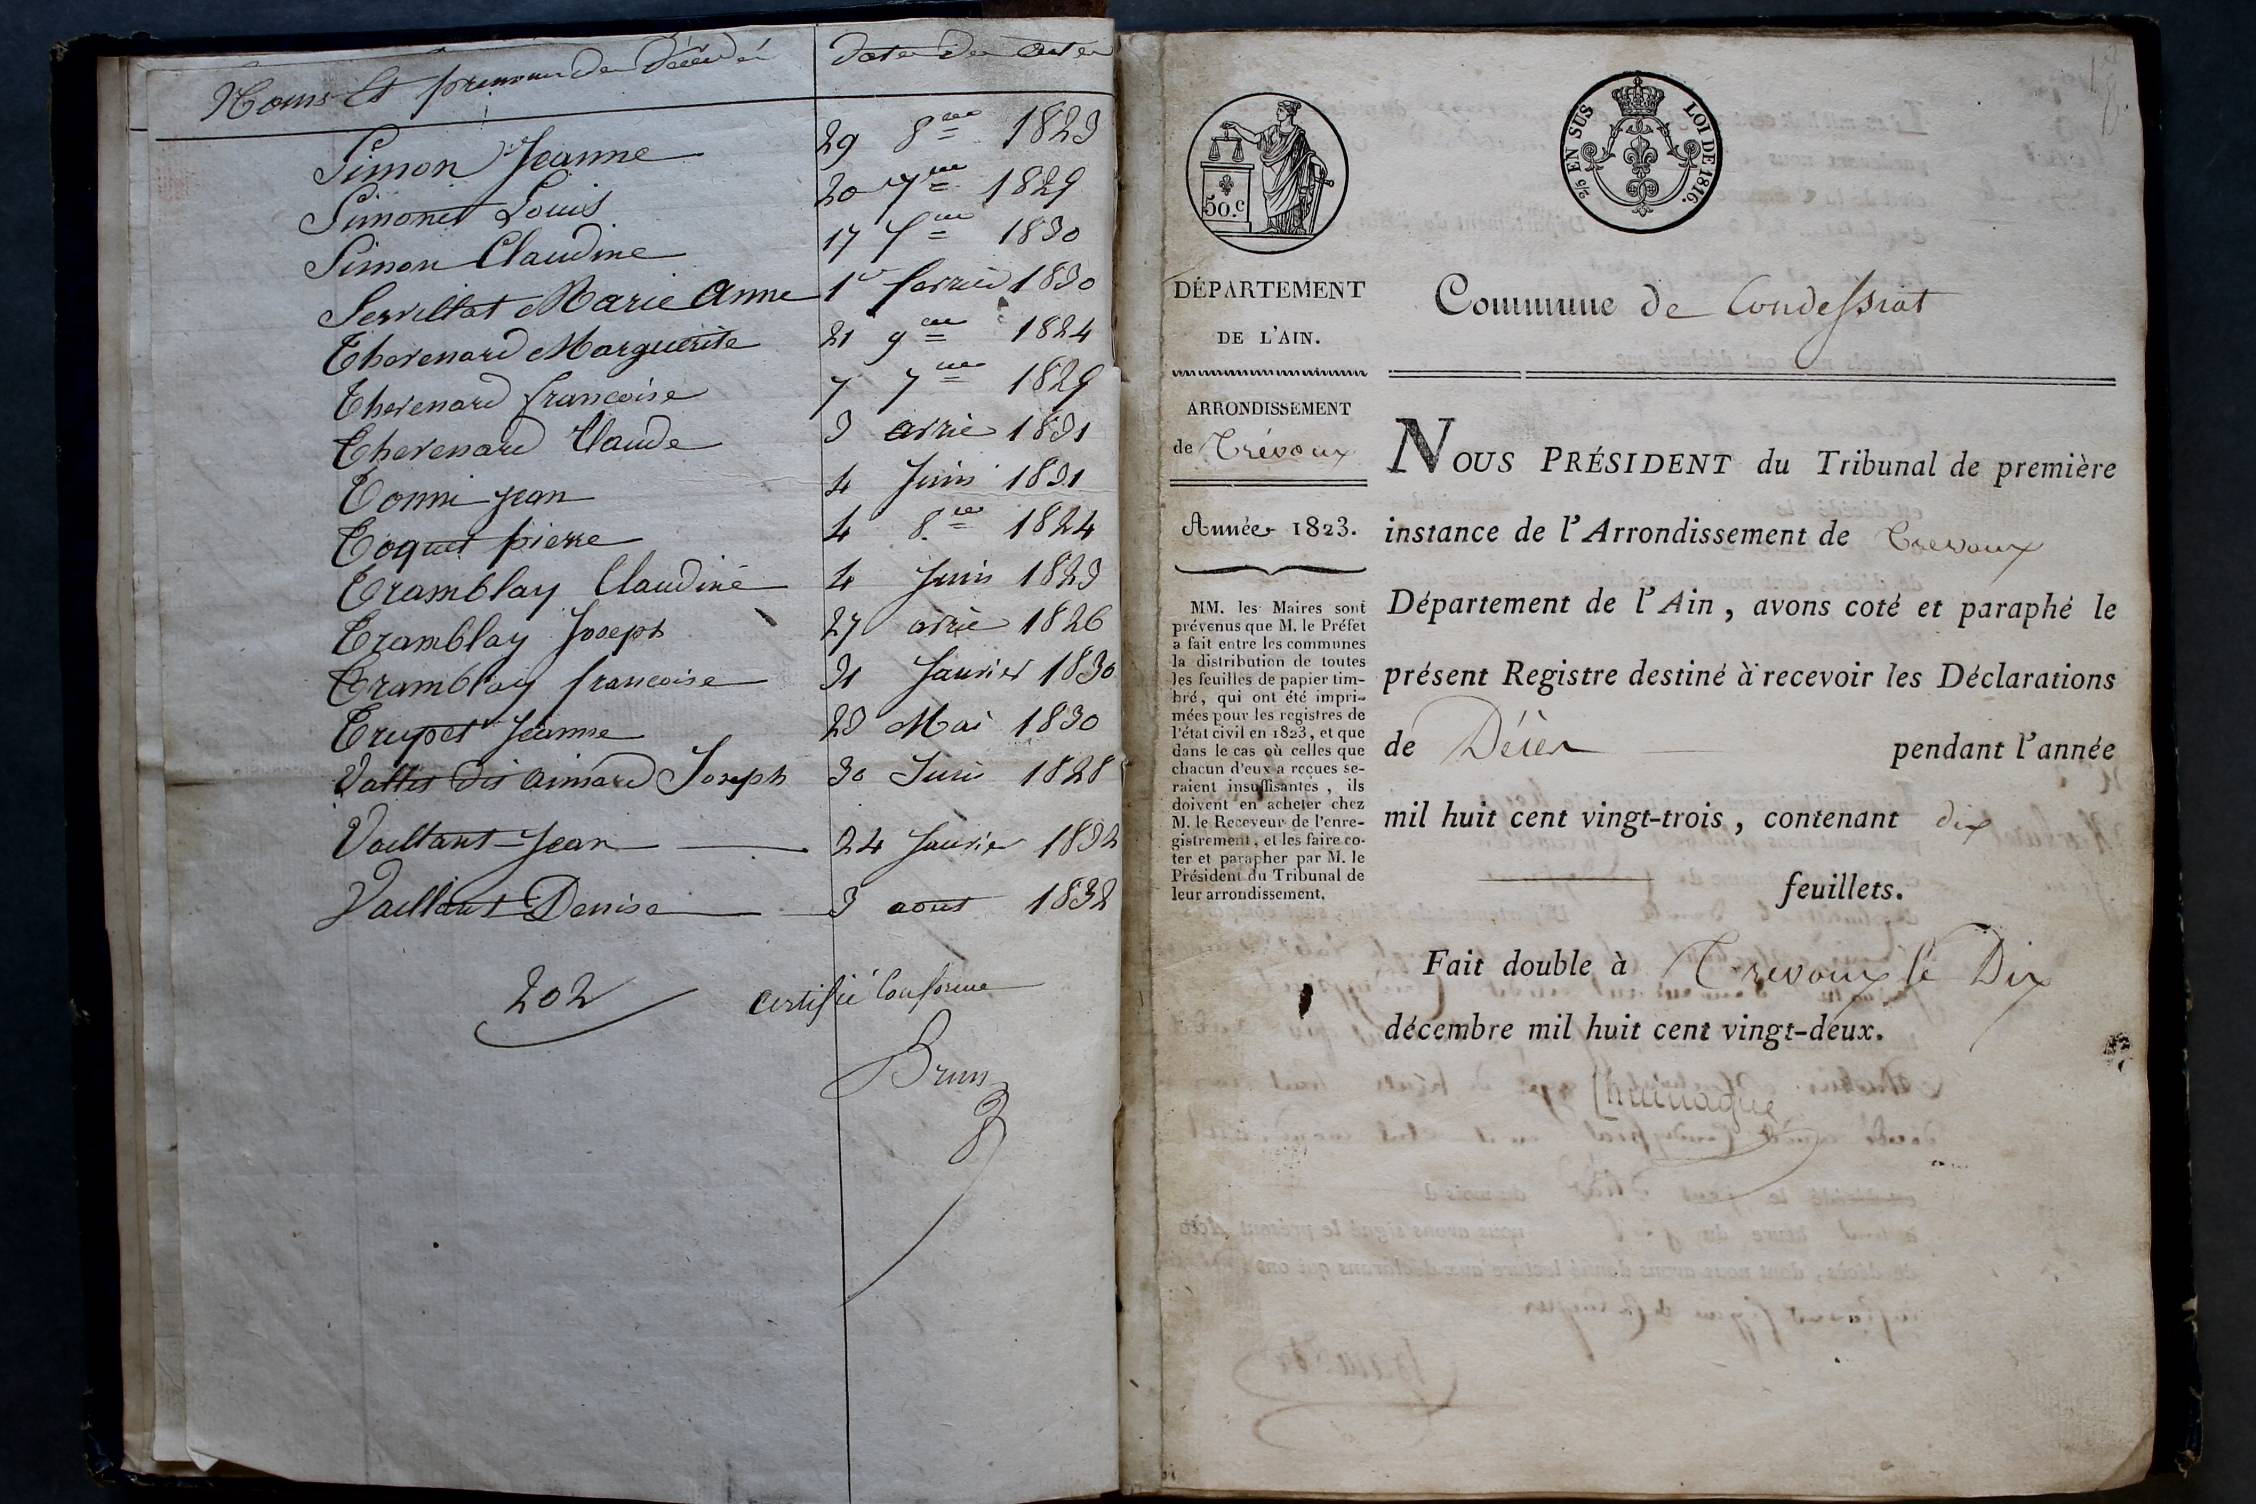 Noms et prenoms des Décédés
dates des actes
Simon Jeanne 29 8bre 1823
Simonet Louis 20 7bre 1829
Simon Claudine 17 1830
Servillat Marie Anne 1er fevrier 1830
Thevenard Marguerite 21 9bre 1824
Thevenard francoise 7 7bre 1829
Thevenard Claude 3 avril 1831
Tonni jean 4 Juin 1831
Toquet pierre 4 8bre 1824
Tramblay Claudine 4 Juin 1823
Tramblay Joseph 27 avril 1826
Tramblay francoise 31 Janvier 1830
Trupet Jeanne 23 Mai 1830
Vattes dis aimard Joseph 30 Juin 1828
Vaillant Jean 24 Janvier 1832
Vaillant Denise 3 aout 1832
202 certifié Conforme
Brun
50.c
2/5 EN SUS LOI DE 1816.
DÉPARTEMENT
DE L'AIN.
ARRONDISSEMENT
de Trévoux
Année 1823.
MM. les Maires sont
prévenus que M. le Préfet
a fait entre les communes
la distribution de toutes
les feuilles de papier tim-
bré, qui ont été impri-
mées pour les registres de
l'état civil en 1823, et que
dans le cas où celles que
chacun d'eux a reçues se-
raient insuffisantes, ils
doivent en acheter chez
M. le Receveur de l'enre-
gistrement, et les faire co-
ter et parapher par M. le
Président du Tribunal de
leur arrondissement.
Commune de Condessiat
NOUS PRÉSIDENT du Tribunal de première
instance de l'Arrondissement de Trevoux
Département de l'Ain, avons coté et paraphé le
présent Registre destiné à recevoir les Déclarations
de Décès pendant l'année
mil huit cent vingt-trois, contenant dix
feuillets.
Fait double à Trevoux le Dix
décembre mil huit cent vingt-deux.